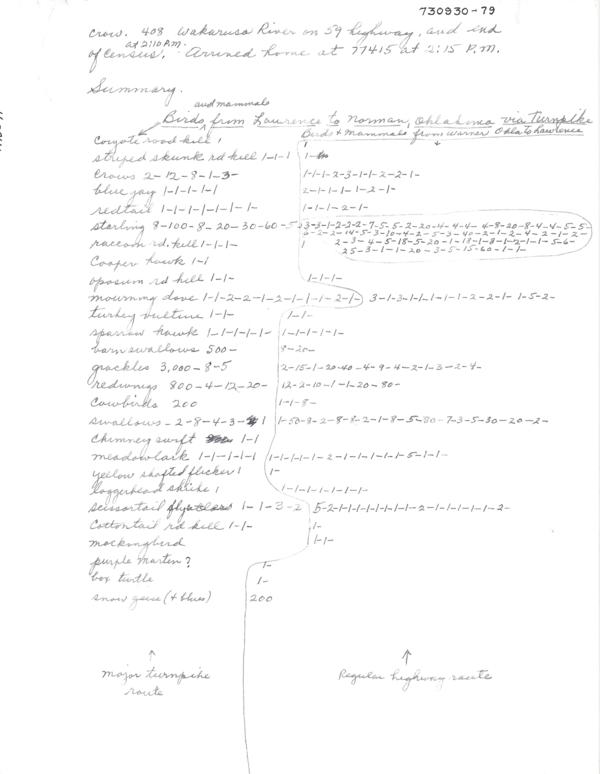 730930-79
Crow. 408 Wakarusa River on 59 highway, and end
of census. at 2:10 P.M. Arrived home at 77415 at 2:15 P.M.
Summary.
Birds and mammals from Lawrence to Norman, Oklahoma via Turnpike
Birds & Mammals from Warner Okla to Lawrence
Coyote road kill 1
striped skunk rd kill 1-1-1 1-
Crows 2-12-8-1-3- 1-1-1-2-3-1-1-2-2-1-
blue jay 1-1-1-1-1 2-1-1-1-1-2-1-
redtail 1-1-1-1-1-1-1- 1-1-1-2-1-
starling 8-100-8-20-30-60-5- 3-3-1-2-2-2-7-5-5-2-20-14-4-4-4-8-20-8-4-4-5-5-
2-2-2-14-5-3-10-4-2-5-3-40-2-1-2-4-2-1-2-
raccoon rd. kill 1-1-1- 1 2-3-4-5-18-5-20-1-13-1-8-1-2-1-1-5-6-
25-3-1-1-20-3-5-15-60-1-1-
Cooper hawk 1-1
oposum rd kill 1-1- 1-1-1-
mourning dove 1-1-2-2-1-2-1-1-1-1-2-1- 3-1-3-1-1-1-1-1-2-2-1-1-5-2-
turkey vulture 1-1- 1-1-
sparrow hawk 1-1-1-1-1- 1-1-1-1-1-
barn swallows 500- 8-20-
grackles 3,000-8-5 2-15-1-20-40-4-9-4-2-1-3-2-4-
redwings 800-4-12-20- 12-2-10-1-1-20-80-
Cowbirds 200 1-1-8-
swallows-2-8-4-3- 1 1-50-8-2-8-8-2-1-8-5-80-7-3-5-30-20-2-
Chimney swift 1-1
meadowlark 1-1-1-1-1 1-1-1-1-1-2-1-1-1-1-1-5-1-1-
yellow shafted flicker 1 1-
loggerhead shrike 1 1-1-1-1-1-1-1-
scissortail 1-1-3-2 5-2-1-1-1-1-1-1-1-1-2-1-1-1-1-1-2-
Cottontail rd kill 1-1- 1-
mockingbird 1-1-
purple martin? 1-
box turtle 1-
snow geese (& blues) 200
↑ ↑
major turnpike
route
Regular highway route